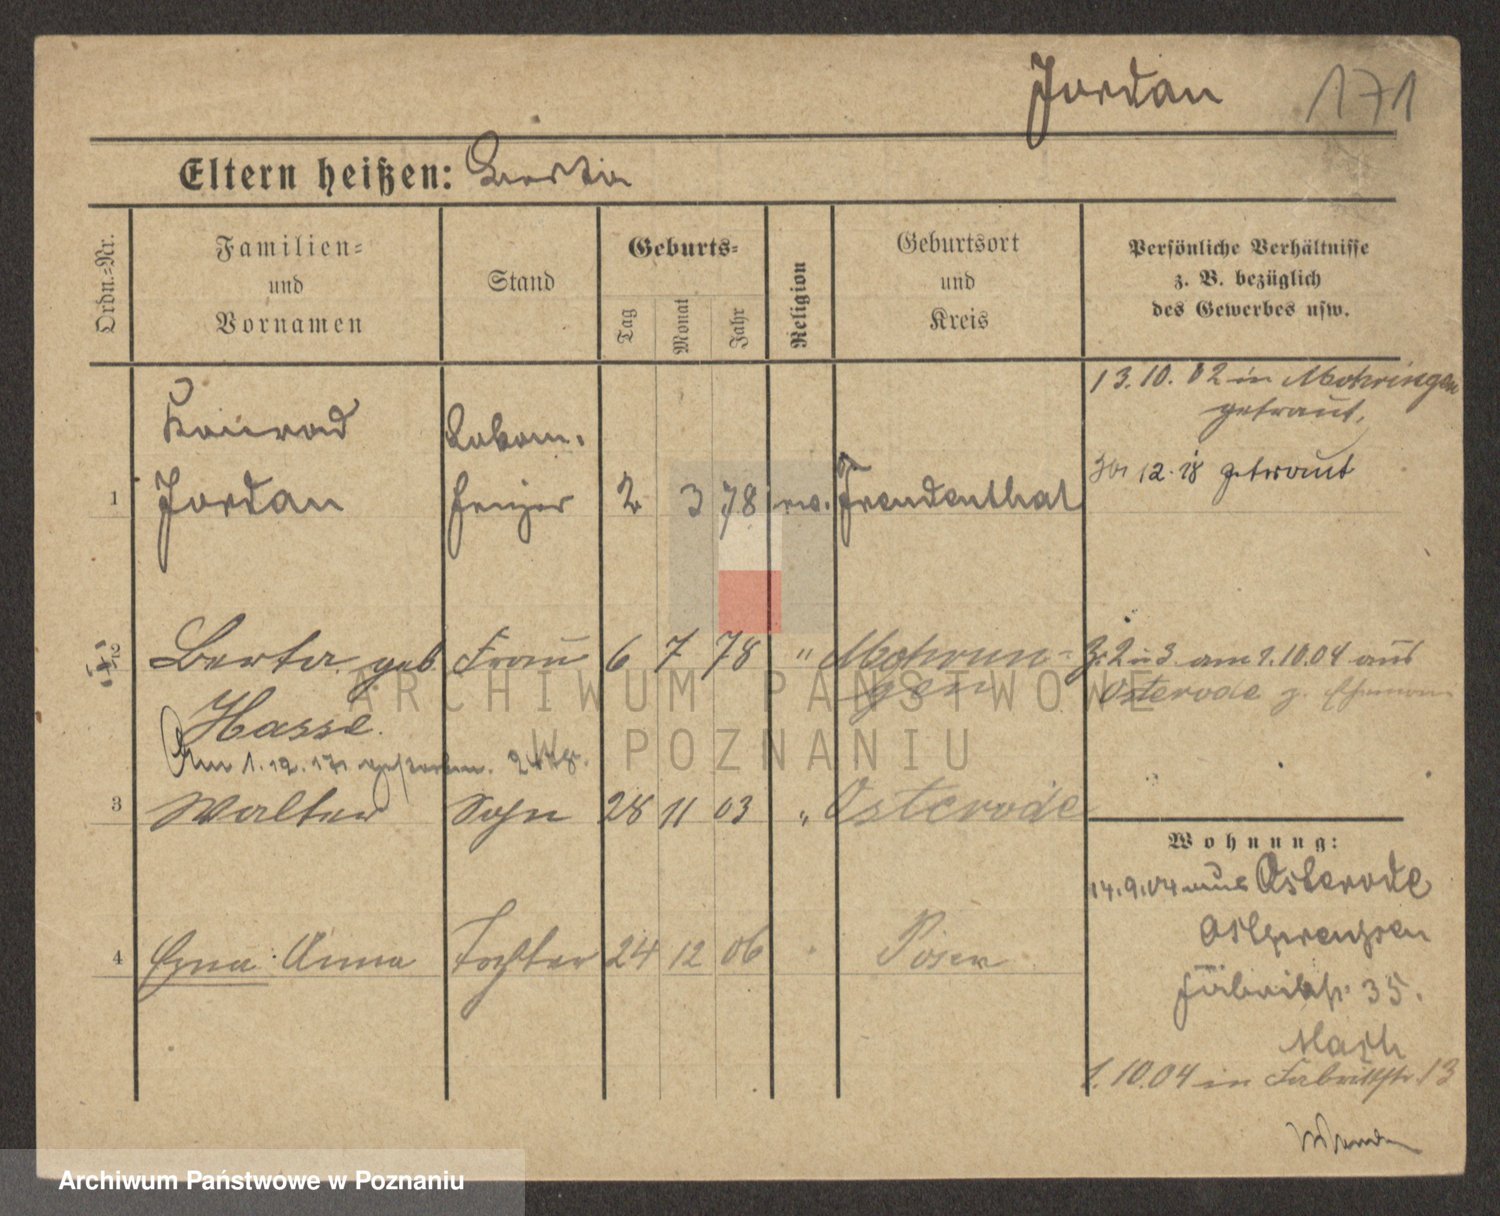 Jordan 171
Eltern heißen:
Ordn.=Nr.
Familien=
und
Vornamen
Stand
Geburts=
Tag
Monat
Jahr
Religion
Geburtsort
und
Kreis
Persönliche Verhältnisse
z. B. bezüglich
des Gewerbes usw.
13.10.02 in Mohringen
getraut,
Konrad Lokom.
12.18 getraut
1 Jordan heizer 2 3 78 ev. Freudenthal
2 Berta geb Frau 6 7 78 " Mohrun-
gen
Z. 2 u 3 am 1.10.04 aus
Osterode z. Ehemann
Hasse.
Am 1.12.17 gestorben.
3 Walter Sohn 28 11 03 " Osterode
Wohnung:
14.9.04 aus Osterode
Ostpreußen
4 Erna Anna Tochter 24 12 06 Posen
Fabrikstr 35.
1.10.04 in Fabrikstr. 13
ARCHIWUM PAŃSTWOWE
W POZNANIU
Archiwum Państwowe w Poznaniu